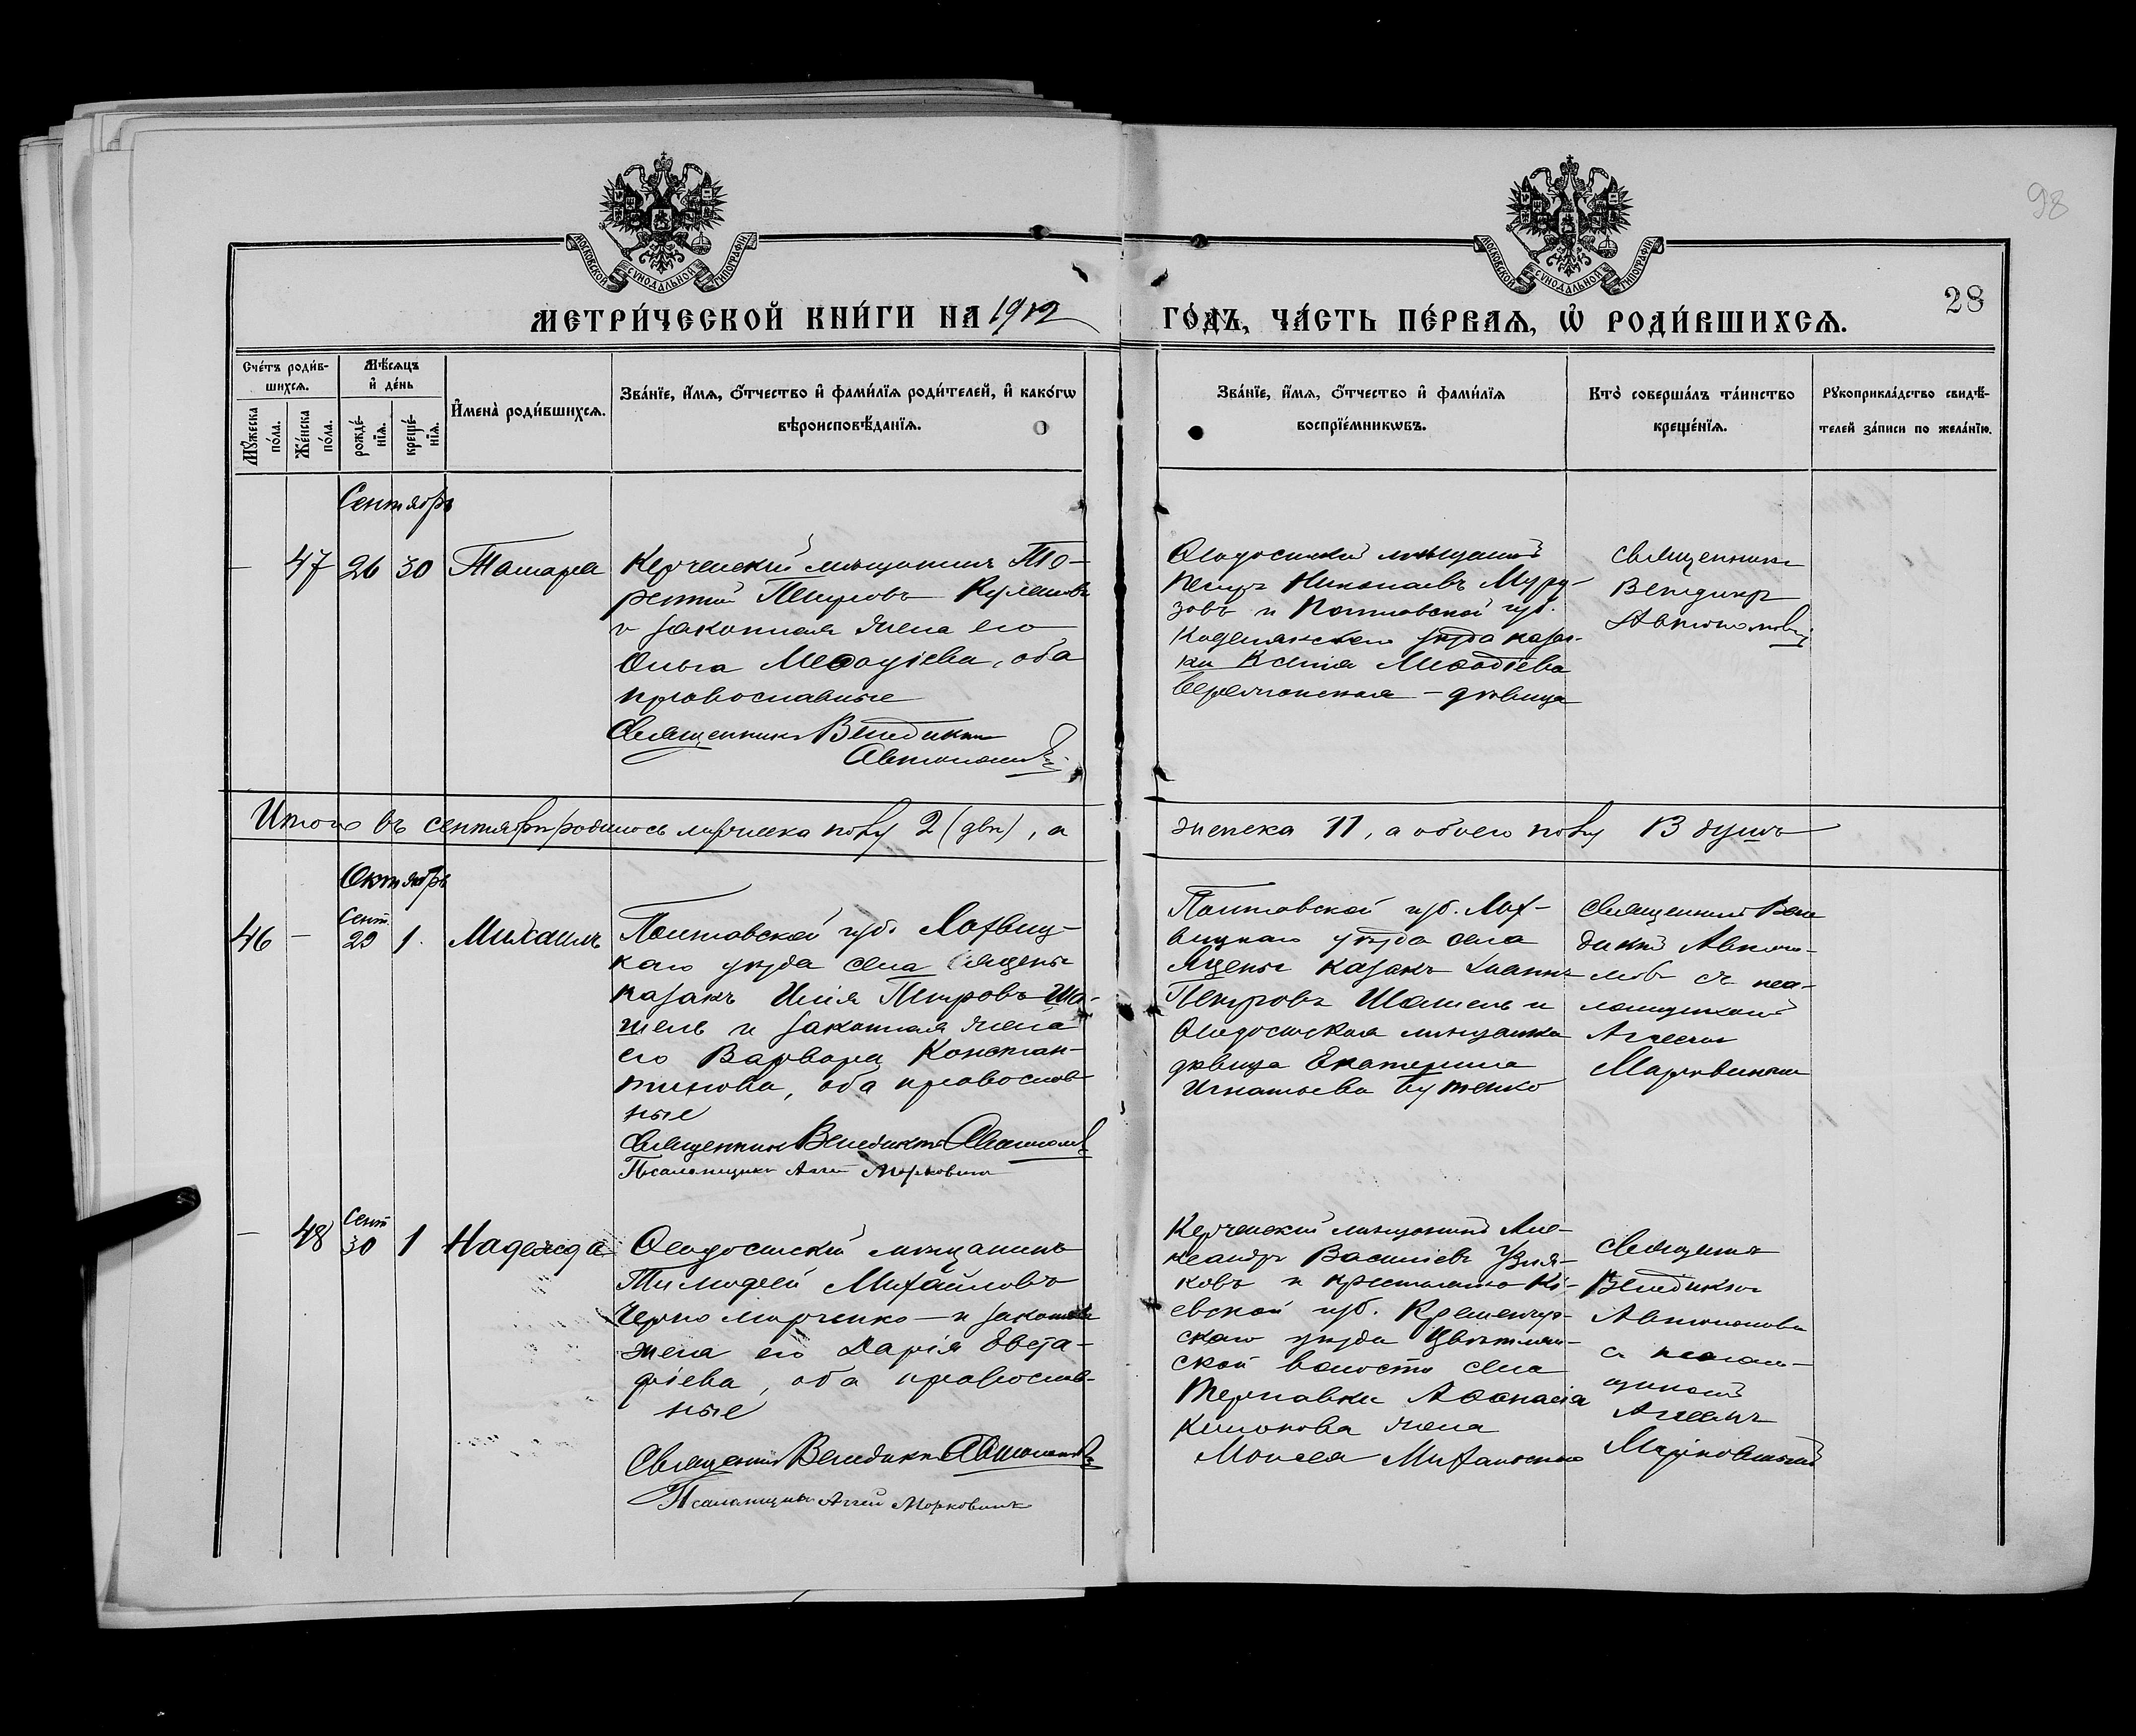 98
МОСКОВСКОЙ СѴНОДАЛЬНОЙ ТИПОГРАФІИ
МОСКОВСКОЙ СѴНОДАЛЬНОЙ ТИПОГРАФІИ
МЕТРИ́ЧЕСКОЙ КНИ́ГИ НА 1912
ГО́ДЪ, ЧА́СТЬ ПЕ́РВАѦ, Ѽ РОДИ́ВШИХСѦ.
28
Сче́тъ роди́в-
шихсѧ.
Мꙋ́жеска
по́ла.
Же́нска
по́ла.
Мѣ́сѧцъ
и҆ де́нь
рожде́-
нїѧ.
креще́-
нїѧ.
И҆мена̀ роди́вшихсѧ.
Зва́нїе, и҆́мѧ, ѻ҆́тчество и҆ фами́лїѧ роди́телей, и҆ како́гѡ
вѣроисповѣ́данїѧ.
Зва́нїе, и҆́мѧ, ѻ҆́тчество и҆ фами́лїѧ
воспрїе́мникѡвъ.
Кто̀ соверша́лъ та́инство
креще́нїѧ.
Рꙋкоприкла́дство свидѣ́-
телей за́писи по жела́нїю.
Сентябрь
— 47 26 30 Тамара
Керченскій мѣщанинъ Те-
рентій Петровъ
и законная жена его
Ольга Меѳодіева, оба
православные
Священникъ Венедиктъ
Автономовъ
Ѳеодосійскій мѣщанинъ
Петръ Николаевъ Муру-
зовъ и Полтавской губ.
уѣзда казач-
ка Ксенія Меѳодіева
— дѣвица
Священникъ
Венедиктъ
Автономовъ
Итого въ сентябрѣ родилось мужеска полу 2 (два), а
женска 11, а обоего полу 13 душъ
Октябрь
46 — Сент. 29 1. Михаилъ
Полтавской губ. Лохвиц-
каго уѣзда села Сенцены
казакъ Илія Петровъ Ша-
мель и законная жена
его Варвара Констан-
тинова, оба православ-
ные
Священникъ Венедиктъ Автономовъ
Псаломщикъ Аггей Марковичъ
Полтавской губ. Лох-
вицкаго уѣзда села
казакъ Іоаннъ
Петровъ Шамель и
Ѳеодосійская мѣщанка
дѣвица Екатерина
Игнатьева Бутенко
Священникъ Вене
диктъ Автоно-
мовъ съ пса-
ломщикомъ
Аггеемъ
Марковичемъ
— 48 Сент 30 1 Надежда
Ѳеодосійскій мѣщанинъ
Тимоѳей Михайловъ
и законная
жена его Дарія Евста-
фіева, оба православ-
ные
Священникъ Венедиктъ Автономовъ
Псаломщикъ Аггей Марковичъ
Керченскій мѣщанинъ Але-
ксандръ Василіевъ Узля-
ковъ и крестьянка Кі-
евской губ.
скаго уѣзда
ской волости села
Терновки Аѳанасія
жена
Священникъ
Венедиктъ
Автономовъ
съ псалом-
щикомъ
Аггеемъ
Марковичемъ